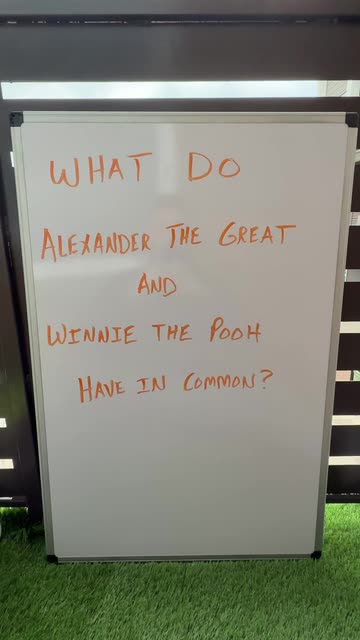 WHAT DO
ALEXANDER THE GREAT
AND
WINNIE THE POOH
HAVE IN COMMON?